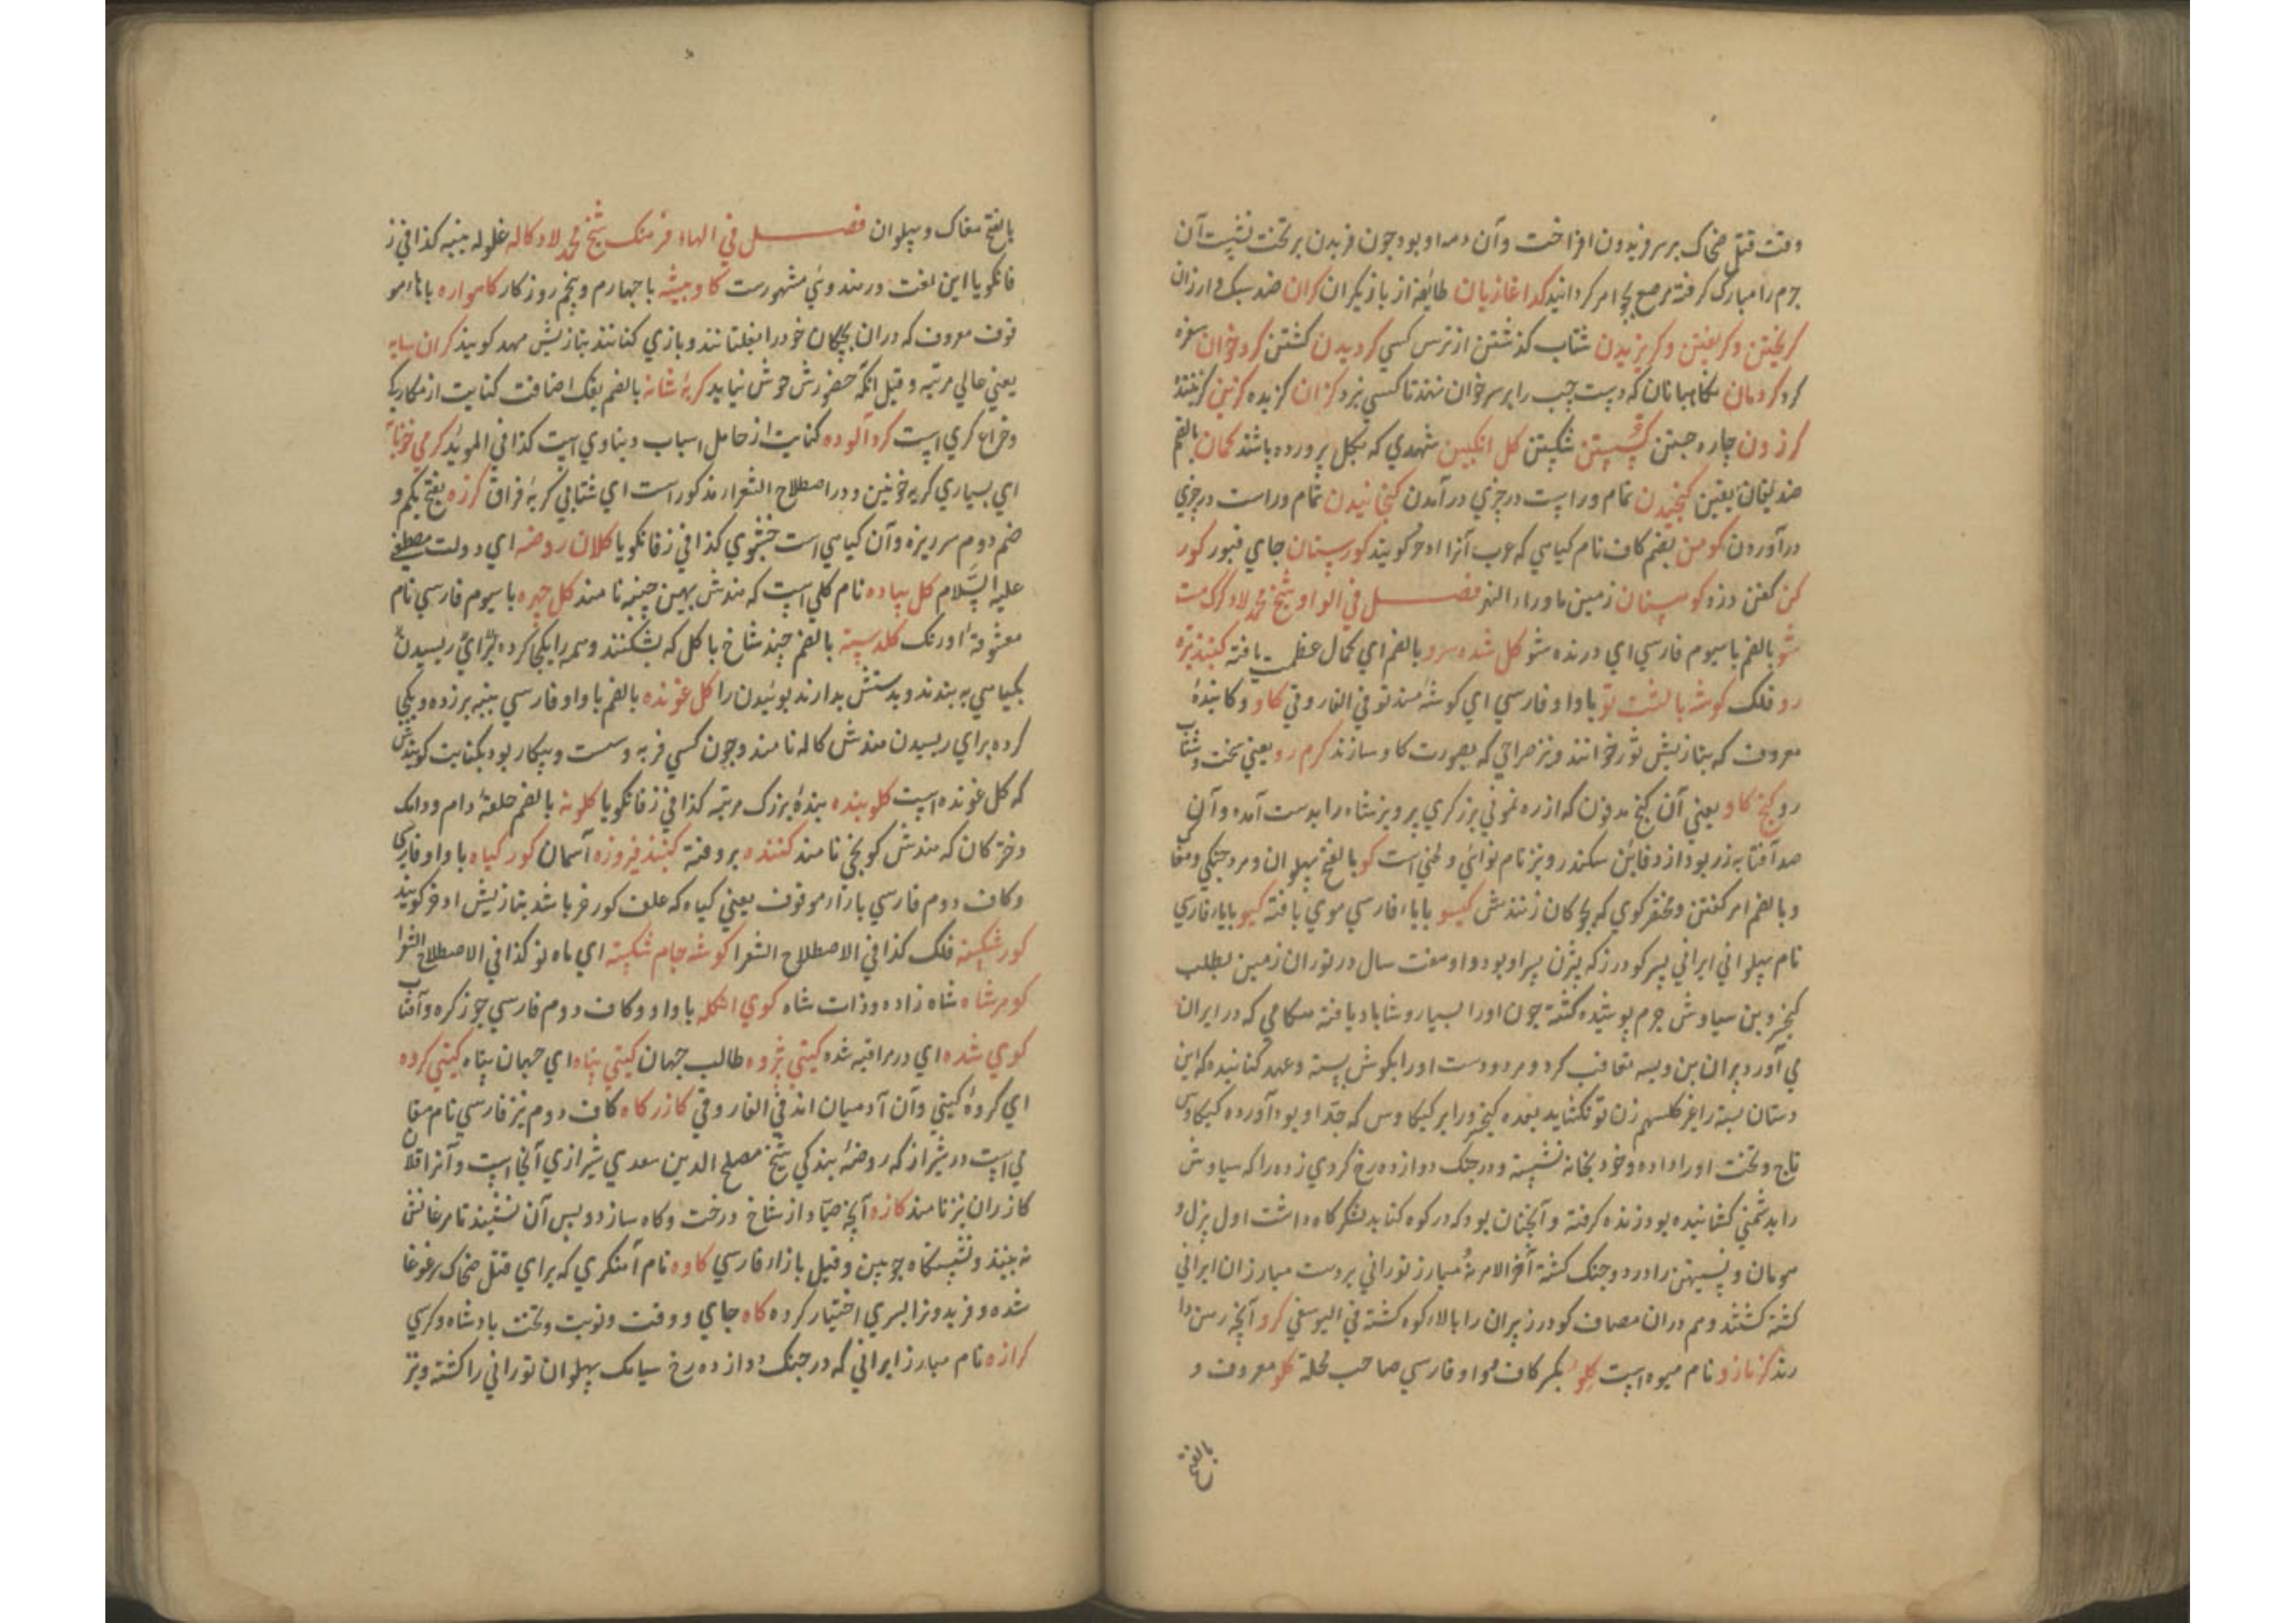 وقت قتل ضحاک بر سر فریدون افراخت وآن دمه او بود چون فریدن بر تخت نشست آن
جرم را مبارک گرفته مرصع بجواهر کردانید کدا غازیان طائفه از بازیکران کران ضد سبک و ارزان
کریختن و کریغتن و کریزیدن شتاب کذشتن از ترس کسی کردیدن کشتن کرد خوان سفره
کرد کردمان نکاهبانان که دست چپ را بر سر خوان نهند تا کسی نبرد کزان کزیده کزین کزیننده
کرزون چاره جستن شکستن کل انکبین شهدی که بکل پرورده باشند کمان بالضم
ضد یقان یقین کنجیدن تمام وراست در چیزی در آمدن کنجانیدن تمام وراست در چیزی
در آوردن کومن بضم کاف نام کیاهی که عرب آنرا اذخر کویند کورستان جای قبور کور
کن کفن دزد کوهستان زمین ماوراء النهر فصل فی الواو شیخ محمد لاد کرک مست
شو بالضم با سیوم فارسی ای درنده شو کل شده سرو بالضم ای کمال عظمت یافته کنبد تیزه
رو فلک کوشه بالشت تو با واو فارسی ای کوشه مسند تو فی الفاروقی کاو وکابنده
معروف که بتازیش ثور خوانند و نیز صراحی که بصورت کاو سازند کرم رو یعنی سخت و شتاب
رو کنج کاو یعنی آن کنج مدفون که از رهنمونی برزکری پرویز شاه را بدست آمده وآن
صد آفتابه زر بود از دفائن سکندر و نیز نام نوائی و لحنی است کو بالفتح پهلوان و مرد جنکی ومغا
وبالضم امر کفتن ومختصر کوی که بچکان زنندش کیسو با یاء فارسی موی بافته کیو با یاء فارسی
نام پهلوانی ایرانی پسر کودرز که بیژن پسر او بود و او هفت سال در توران زمین بطلب
کیخسرو بن سیاوش جرم پوشیده کشته چون او را بسیار و شاباد یافته هنکامی که در ایران
می آورد پیران بن ویسه تعاقب کرد و هر دو دست او را بکوش بسته وعهد کنانیده که این
دستان بسته را غیر کلسهم زن تو نکشاید بعده کیخسرو را بر کیکاوس که جد او بود آورده کیکاوس
تاج وتخت او را داده وخود بخانه نشسته و در جنک دوازده رخ کردی زده را که سیاوش
را بدشمنی کشانیده بود زنده کرفته وآنچنان بود که در کوه کنابد لشکر کاه داشت اول نزل و
هومان و نستیهن را در دو جنک کشته آخر الامر نه مبارز تورانی بر دست مبارزان ایرانی
کشته کشتند وهم دران مصاف کودرز پیران را بالاء کوه کشته فی الیوسفی کرو آنچه رهن دا
رند کزنازو نام میوه است کلو بکسر کاف مع واو فارسی صاحب محلة کلو معروف و
بالفتح
بالفتح مغاک وپهلوان فصل فی الهاء فرهنک شیخ محمد لاد کاله غلوله پنبه کذا فی ز
فانکویا این لغت در هندوی مشهورست کاو پیشه با چهارم وپنجم روزکار کاهواره با هاء مو
قوف معروف که دران بچکان خود را بغلتانند وبازی کنانند بتازیش مهد کویند کران سایه
یعنی عالی مرتبه وقیل آنکه حضورش خوش نیاید کربه شانه بالضم بفک اضافت کنایت از مکاریکه
و خراع کری است کرد آلوده کنایت از حامل اسباب دنیاوی است کذا فی الموید کرمی خونا
ای بسیاری کریه خونین ودر اصطلاح الشعراء مذکور است ای شتابی کریه فراق کرزه بفتح یکم و
ضم دوم سر ریزه وآن کیاهی است خوشبوی کذا فی زفانکویا کلان روضه ای دولت مصطفی
علیه السلام کل پیاده نام کلی است که هندش بهین چنبه نامند کل چهره با سیوم فارسی نام
معشوقه اورنک کلدسته بالضم چند شاخ با کل که بشکنند وهمه را یکجا کرده برای ریسیدن
بکیاهی به بندند وبدستش بدارند بوئیدن را کل غونده بالضم با واو فارسی پنبه بر زده ویکجا
کرده برای ریسیدن هندش کاله نامند وچون کسی فربه وسست وبیکار بود بکنایت کویندش
که کل غونده است کلو بنده بنده بزرک مرتبه کذا فی زفانکویا کلونه بالضم حلقه دام ودانک
دخترکان که هندش کونچی نامند کننده بر وفته کنبد فیروزه آسمان کور کیاه با واو فارسی
وکاف دوم فارسی با راء موقوف یعنی کیاه که علف کور خر باشد بتازیش اذخر کویند
کور شکسته فلک کذا فی الاصطلاح الشعرا کوشه جام شکسته ای ماه نو کذا فی الاصطلاح الشعرا
کوهر شاه شاه زاده وذات شاه کوی انکله با واو وکاف دوم فارسی جوز کره وآفتاب
کوی شده ای در مراقبه شده کیتی پژوه طالب جهان کیتی پناه ای جهان پناه کیتی کرده
ای کروه کیتی وآن آدمیان اند فی الفاروقی کازر کاه کاف دوم نیز فارسی نام مقا
می است در شیراز که روضه بندکی شیخ مصلح الدین سعدی شیرازی آنجا است وآنرا قلا
کازران نیز نامند کازه آنچه صیاد از شاخ درخت وکاه سازد وپس آن نشیند تا مرغانش
نه بینند ونشستکاه چوبین وقیل با زاء فارسی کاوه نام آهنکری که برای قتل ضحاک بر غوغا
شده وفریدونرا بسری اختیار کرده کاه جای ووقت ونوبت وتخت بادشاه وکرسی
کرازه نام مبارز ایرانی که در جنک دوازده رخ سیامک پهلوان تورانی را کشته ونیز